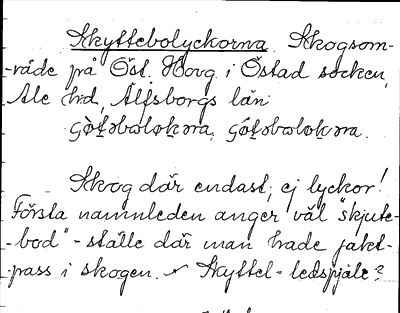 Skyttebolyckorna. Skogsom-
-råde på Öst. Hovg. i Östad socken,
Ale hd, Älfsborgs län

Skog där endast, ej lyckor!
Första namnleden anger väl "skjute-
-bod" - ställe där man hade jakt-
-pass i skogen. Skyttel-